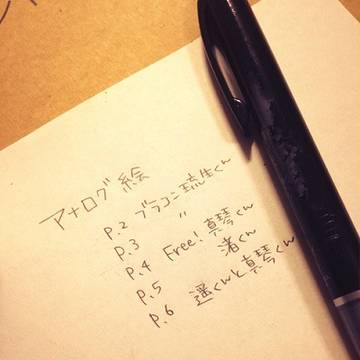 アナログ絵
p.2 ブラコン琉生くん
p.3 〃
p.4 Free! 真琴くん
p.5 渚くん
p.6 遥くんと真琴くん